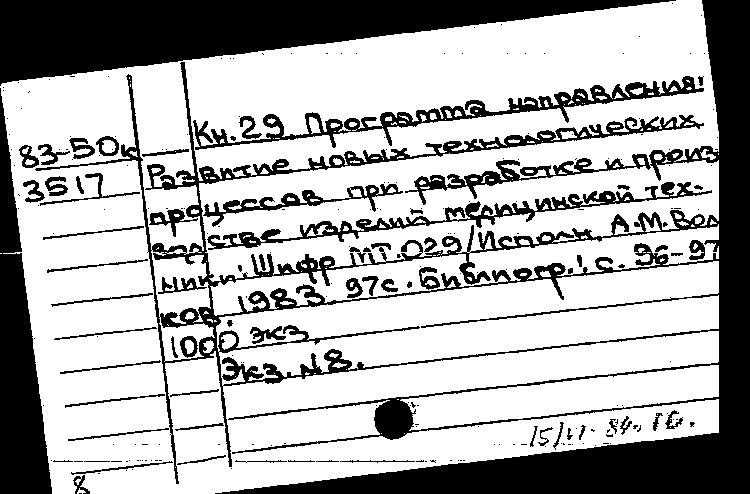 Кн. 29. Программа направления:
83-50к
3517
Развитие новых технологических
процессов при разработке и произ
водстве изделий медицинской тех-
ники: Шифр МТ.029/Исполн. А.М.Вол
ков. 1983. 97с. Библиогр.: с. 96-97
1000 экз.
Экз. №8.
84. 
8